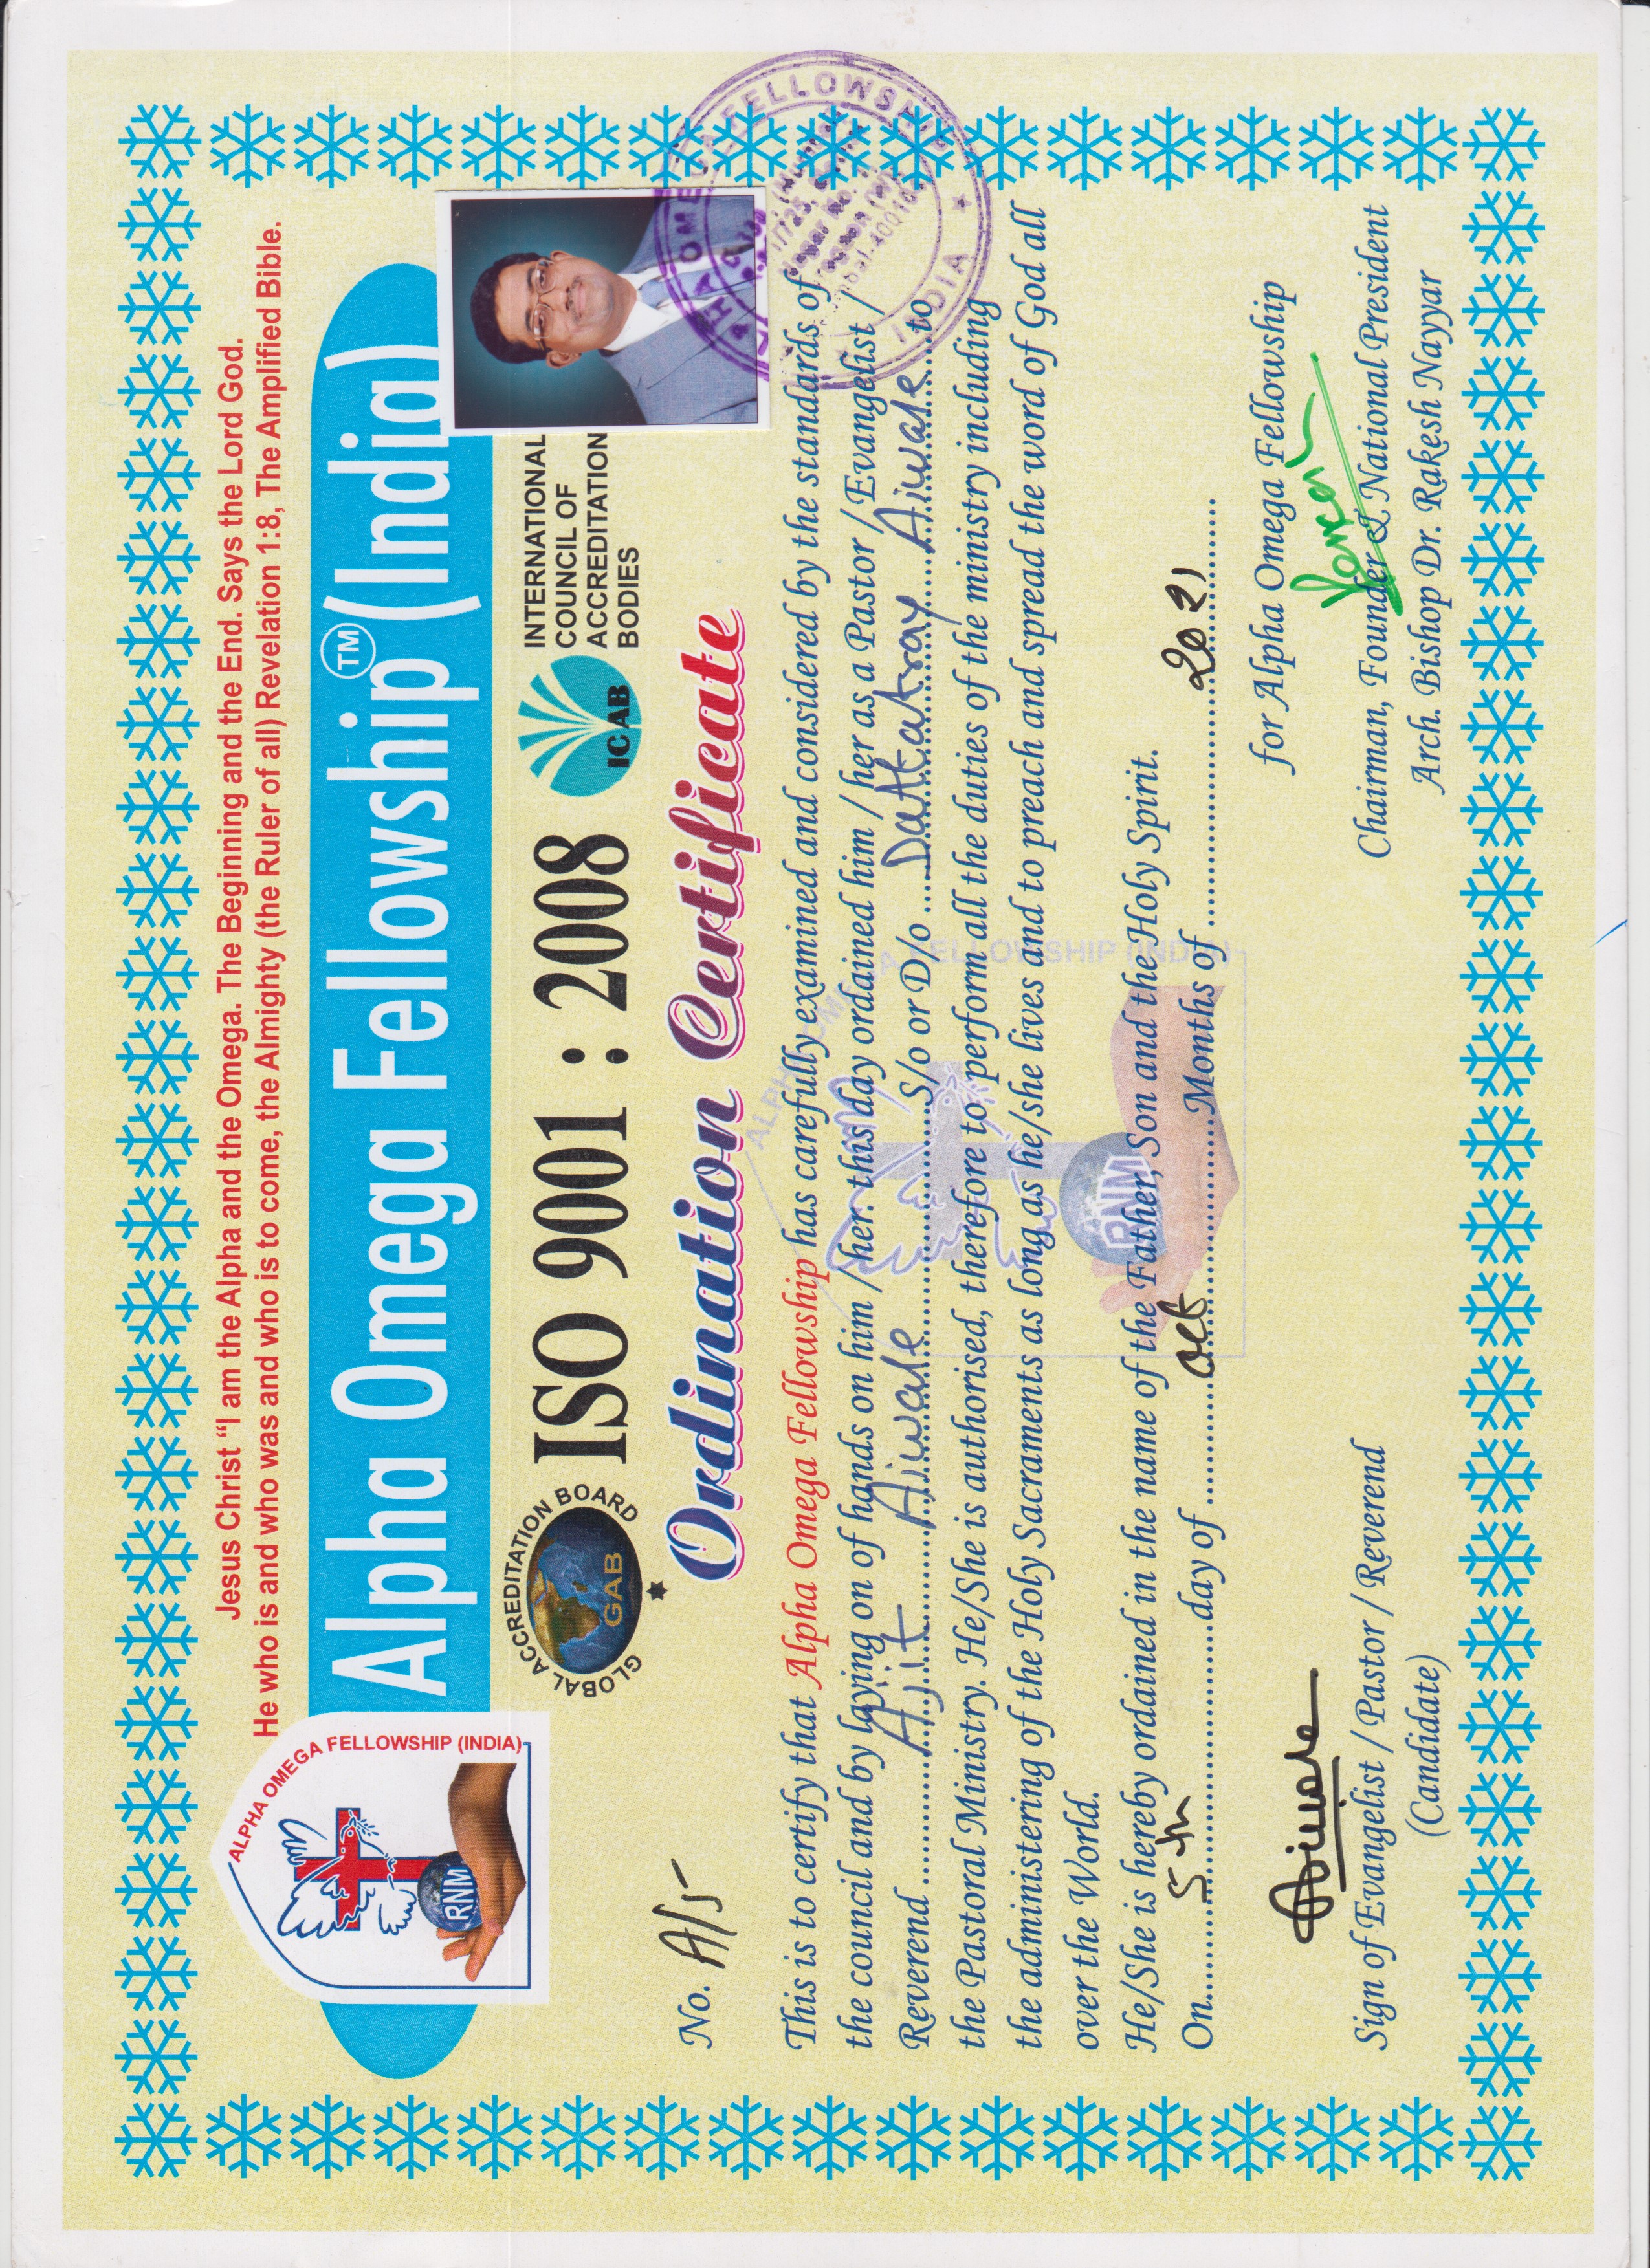 Jesus Christ “I am the Alpha and the Omega. The Beginning and the End. Says the Lord God.
He who is and who was and who is to come, the Almighty (the Ruler of all) Revelation 1:8, The Amplified Bible.
ALPHA OMEGA FELLOWSHIP (INDIA)
RNM
Alpha Omega Fellowship TM (India)
GLOBAL ACCREDITATION BOARD
GAB
ISO 9001 : 2008
ICAB
INTERNATIONAL
COUNCIL OF
ACCREDITATION
BODIES
No. A/5
Ordination Certificate
This is to certify that Alpha Omega Fellowship has carefully examined and considered by the standards of
the council and by laying on of hands on him / her. this day ordained him / her as a Pastor / Evangelist /
Reverend Ajit Aiwale S/o or D/o Dattatray Aiwale to
the Pastoral Ministry. He/She is authorised, therefore to perform all the duties of the ministry including
the administering of the Holy Sacraments as long as he/she lives and to preach and spread the word of God all
over the World.
He/She is hereby ordained in the name of the Father, Son and the Holy Spirit.
On 5th day of Oct Months of 2021
for Alpha Omega Fellowship
Aiwale
Sign of Evangelist / Pastor / Reverend
(Candidate)
Chairman, Founder & National President
Arch. Bishop Dr. Rakesh Nayyar
ALPHA OMEGA FELLOWSHIP
INDIA
RNM